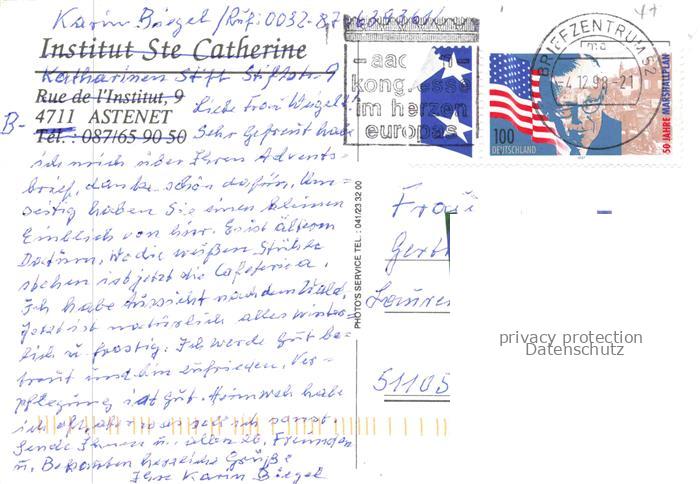 Karin Biegel / Ruf: 0032-87-
Institut Ste Catherine
Katharinen Stift Stiftstr. 9
Rue de l'Institut, 9
B- 4711 ASTENET
Tél.: 087/65 90 50
Liebe Frau Weigelt!
Sehr gefreut habe
ich mich über Ihren Advents-
brief, danke schön dafür, Um-
seitig haben Sie einen kleinen
Einblick von hier. Es ist älteren
Datum, wo die weißen Stühle
stehen ist jetzt die Cafeteria.
Ich habe Aussicht nach dem Wald,
Jetzt ist natürlich alles winter-
lich u. frostig. Ich werde gut be-
treut und bin zufrieden. Ver-
pflegung ist gut. Heimweh habe
ich oft, aber
Sende Ihnen u. allen Freunden
u. Bekannten herzliche Grüße
Ihre Karin Biegel
aac
kongresse
im herzen
europas
BRIEFZENTRUM 52
-4.12.98-21
100
DEUTSCHLAND
50 JAHRE MARSHALLPLAN
PHOTO'S SERVICE TEL.: 041/23 32 00
Frau
Gert
Lauren
51105
privacy protection
Datenschutz